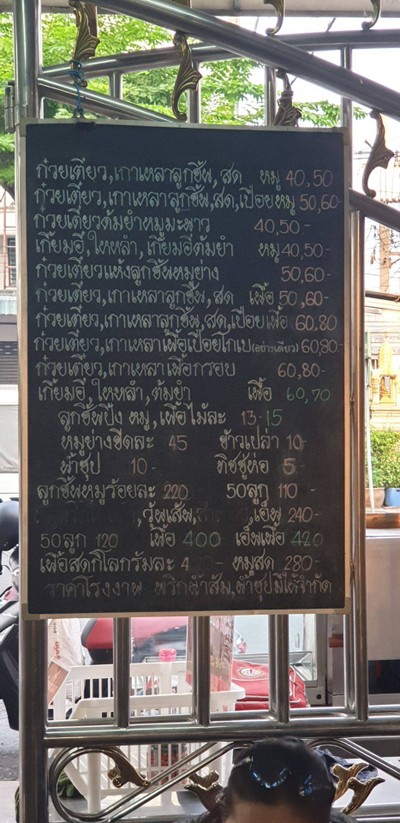 ก๋วยเตี๋ยว,เกาเหลาลูกชิ้น,สด หมู 40,50
ก๋วยเตี๋ยว,เกาเหลาลูกชิ้น,สด,เปื่อยหมู 50,60-
ก๋วยเตี๋ยวต้มยำหมูมะนาว 40,50-
เกี้ยมอี๋,ใหหลำ,เกี้ยมอี๋ต้มยำ หมู 40,50-
ก๋วยเตี๋ยวแห้งลูกชิ้นหมูย่าง 50,60-
ก๋วยเตี๋ยว,เกาเหลาลูกชิ้น,สด เนื้อ 50,60-
ก๋วยเตี๋ยว,เกาเหลาลูกชิ้น,สด,เปื่อยเนื้อ 60,80
ก๋วยเตี๋ยว,เกาเหลาเนื้อเปื่อยโกเบ(อย่างเดียว) 60,80-
ก๋วยเตี๋ยว,เกาเหลาเนื้อกรอบ 60,80-
เกี้ยมอี๋,ใหหลำ,ต้มยำ เนื้อ 60,70
ลูกชิ้นปิ้ง หมู,เนื้อไม้ละ 13-15
หมูย่างขีดละ 45 ข้าวเปล่า 10-
น้ำซุป 10- ทิชชู่ห่อ 5-
ลูกชิ้นหมูร้อยละ 220 50ลูก 110-
,เอ็น 240-
50ลูก 120 เนื้อ 400 เอ็นเนื้อ 420
เนื้อสดกิโลกรัมละ หมูสด 280-
ราคาโรงงาน พริกน้ำส้ม,น้ำซุปมีให้จำกัด